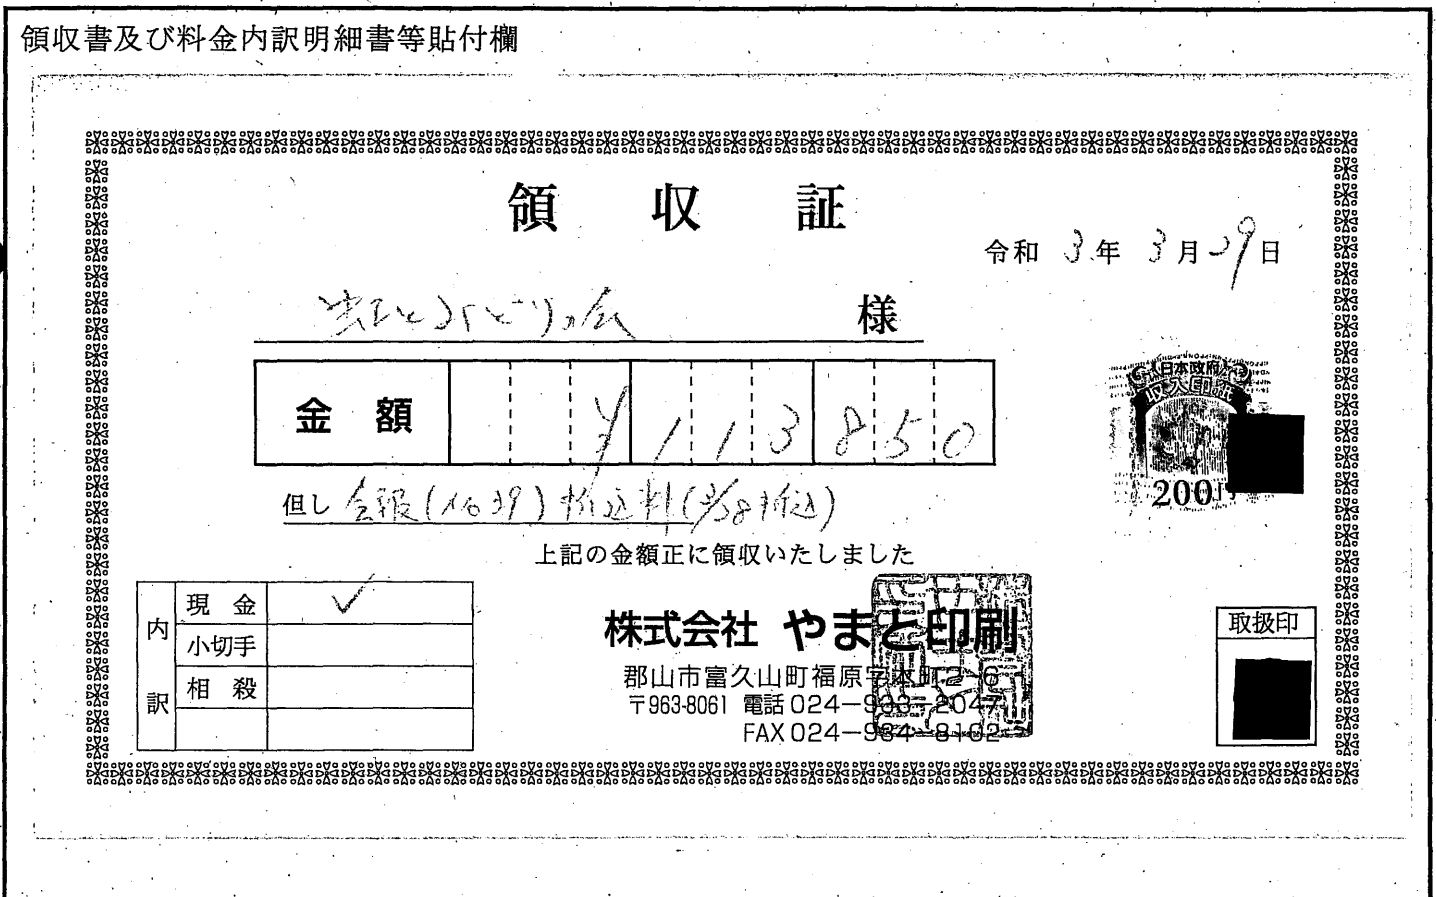 領収書及び料金内訳明細書等貼付欄
領収証
令和 3年 3月29日
虹とみどりの会 様
金額 ¥113850
但し 会報(No39)折込料(3/28折込)
上記の金額正に領収いたしました
日本政府
収入印紙
200円
内訳
現金 ✓
小切手
相殺
株式会社 やまと印刷
郡山市富久山町福原字本町2-6
〒963-8061 電話024-933-2047
FAX024-934-8102
取扱印